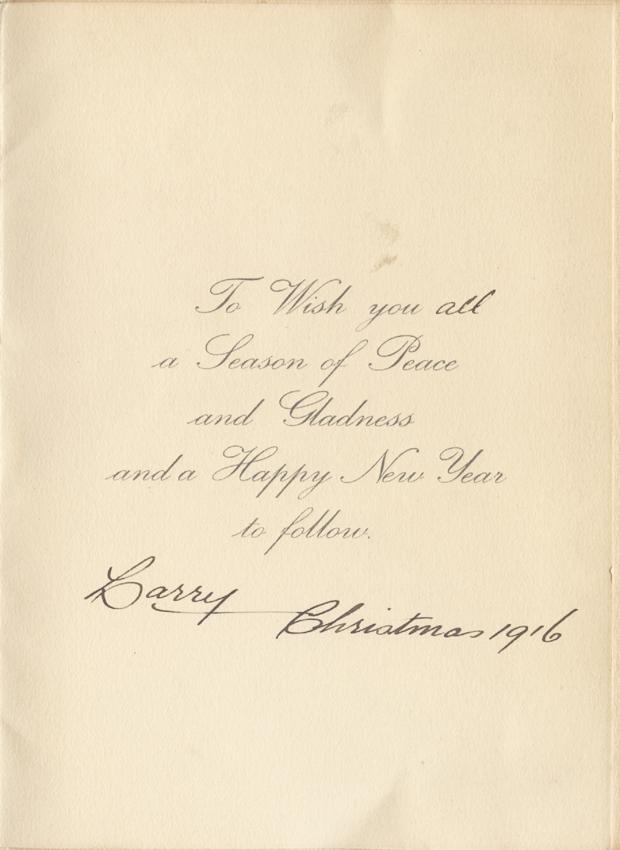 To Wish you all
a Season of Peace
and Gladness
and a Happy New Year
to follow.
Larry
Christmas 1916